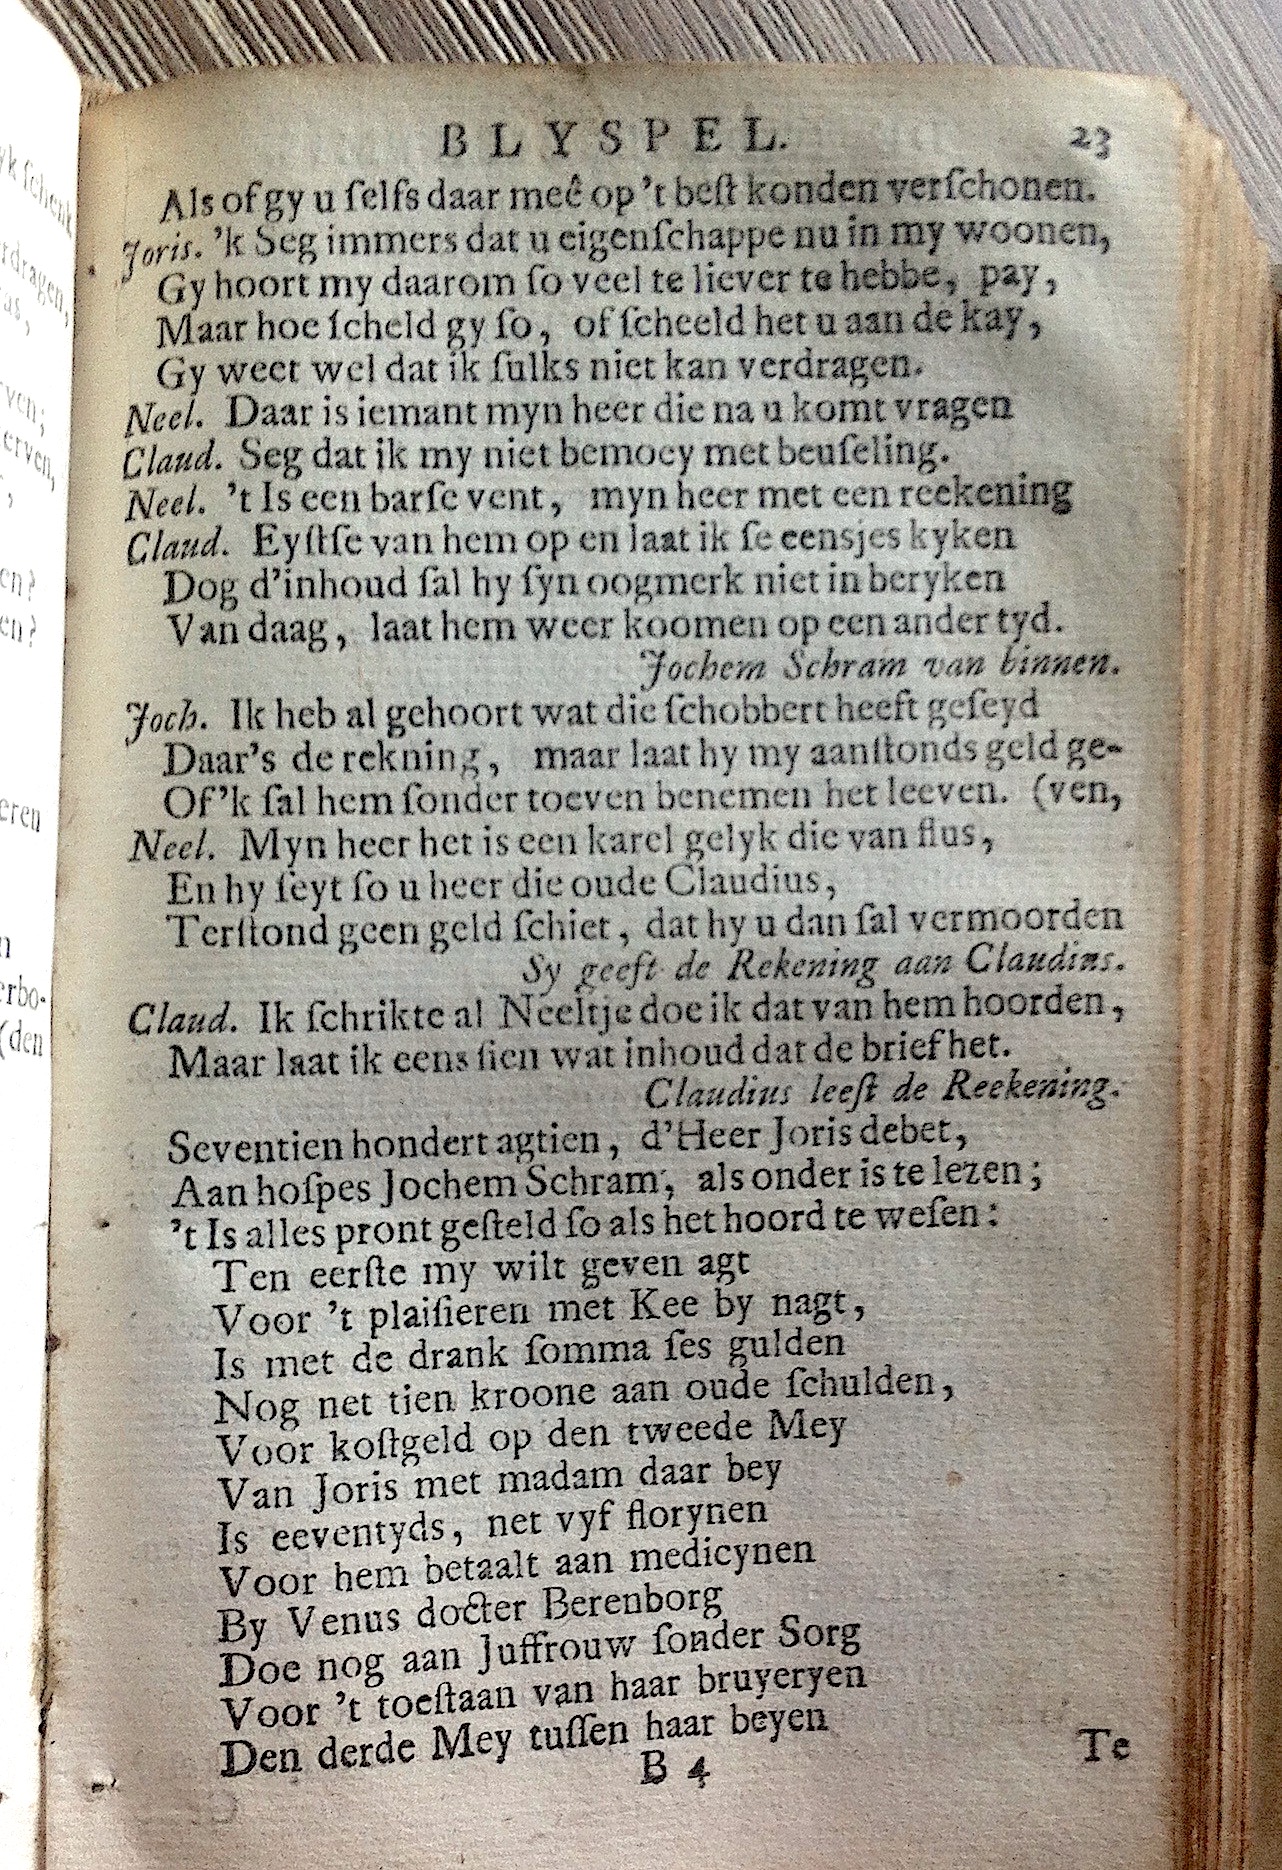 BLYSPEL. 23
Als of gy u ſelfs daar meê op 't beſt konden verſchonen.
Joris. 'k Seg immers dat u eigenſchappe nu in my woonen,
Gy hoort my daarom ſo veel te liever te hebbe, pay,
Maar hoe ſcheld gy ſo, of ſcheeld het u aan de kay,
Gy weet wel dat ik ſulks niet kan verdragen.
Neel. Daar is iemant myn heer die na u komt vragen
Claud. Seg dat ik my niet bemoey met beuſeling.
Neel. 't Is een barſe vent, myn heer met een reekening
Claud. Eyſtſe van hem op en laat ik ſe eensjes kyken
Dog d'inhoud ſal hy ſyn oogmerk niet in beryken
Van daag, laat hem weer koomen op een ander tyd.
Jochem Schram van binnen.
Joch. Ik heb al gehoort wat die ſchobbert heeft geſeyd
Daar's de rekning, maar laat hy my aanſtonds geld ge-
Of 'k ſal hem ſonder toeven benemen het leeven. (ven,
Neel. Myn heer het is een karel gelyk die van flus,
En hy ſeyt ſo u heer die oude Claudius,
Terſtond geen geld ſchiet, dat hy u dan ſal vermoorden
Sy geeft de Rekening aan Claudius.
Claud. Ik ſchrikte al Neeltje doe ik dat van hem hoorden,
Maar laat ik eens ſien wat inhoud dat de brief het.
Claudius leeſt de Reekening.
Seventien hondert agtien, d'Heer Joris debet,
Aan hoſpes Jochem Schram, als onder is te lezen;
't Is alles pront geſteld ſo als het hoord te weſen:
Ten eerſte my wilt geven agt
Voor 't plaiſieren met Kee by nagt,
Is met de drank ſomma ſes gulden
Nog net tien kroone aan oude ſchulden,
Voor koſtgeld op den tweede Mey
Van Joris met madam daar bey
Is eeventyds, net vyf florynen
Voor hem betaalt aan medicynen
By Venus docter Berenborg
Doe nog aan Juffrouw ſonder Sorg
Voor 't toeſtaan van haar bruyeryen
Den derde Mey tuſſen haar beyen
B 4 Te